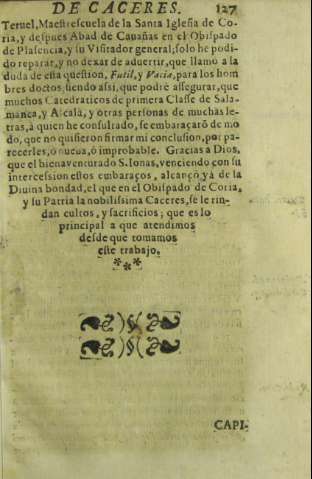 DE CACERES. 127
Teruel, Maestrescuela de la Santa Iglesia de Co-
ria, y despues Abad de Cauañas en el Obispado
de Plasencia, y su Visitador general, solo he podi-
do reparar, y no dexar de aduertir, que llamò a la
duda de esta question, Futil, y Vacia, para los hom
bres doctos, siendo assi, que podrè assegurar, que
muchos Catedraticos de primera Classe de Sala-
manca, y Alcalà, y otras personas de muchas le-
tras, à quien he consultado, se embaraçarõ de mo
do, que no quisieron firmar mi conclusion, por pa-
recerles, ò nueua, ò improbable. Gracias a Dios,
que el bienauenturado S. Ionas, venciendo con su
intercession estos embaraços, alcançò yà de la
Diuina bondad, el que en el Obispado de Coria,
y su Patria la nobilissima Caceres, se le rin-
dan cultos, y sacrificios; que es lo
principal a que atendimos
desde que tomamos
este trabajo.
CAPI-